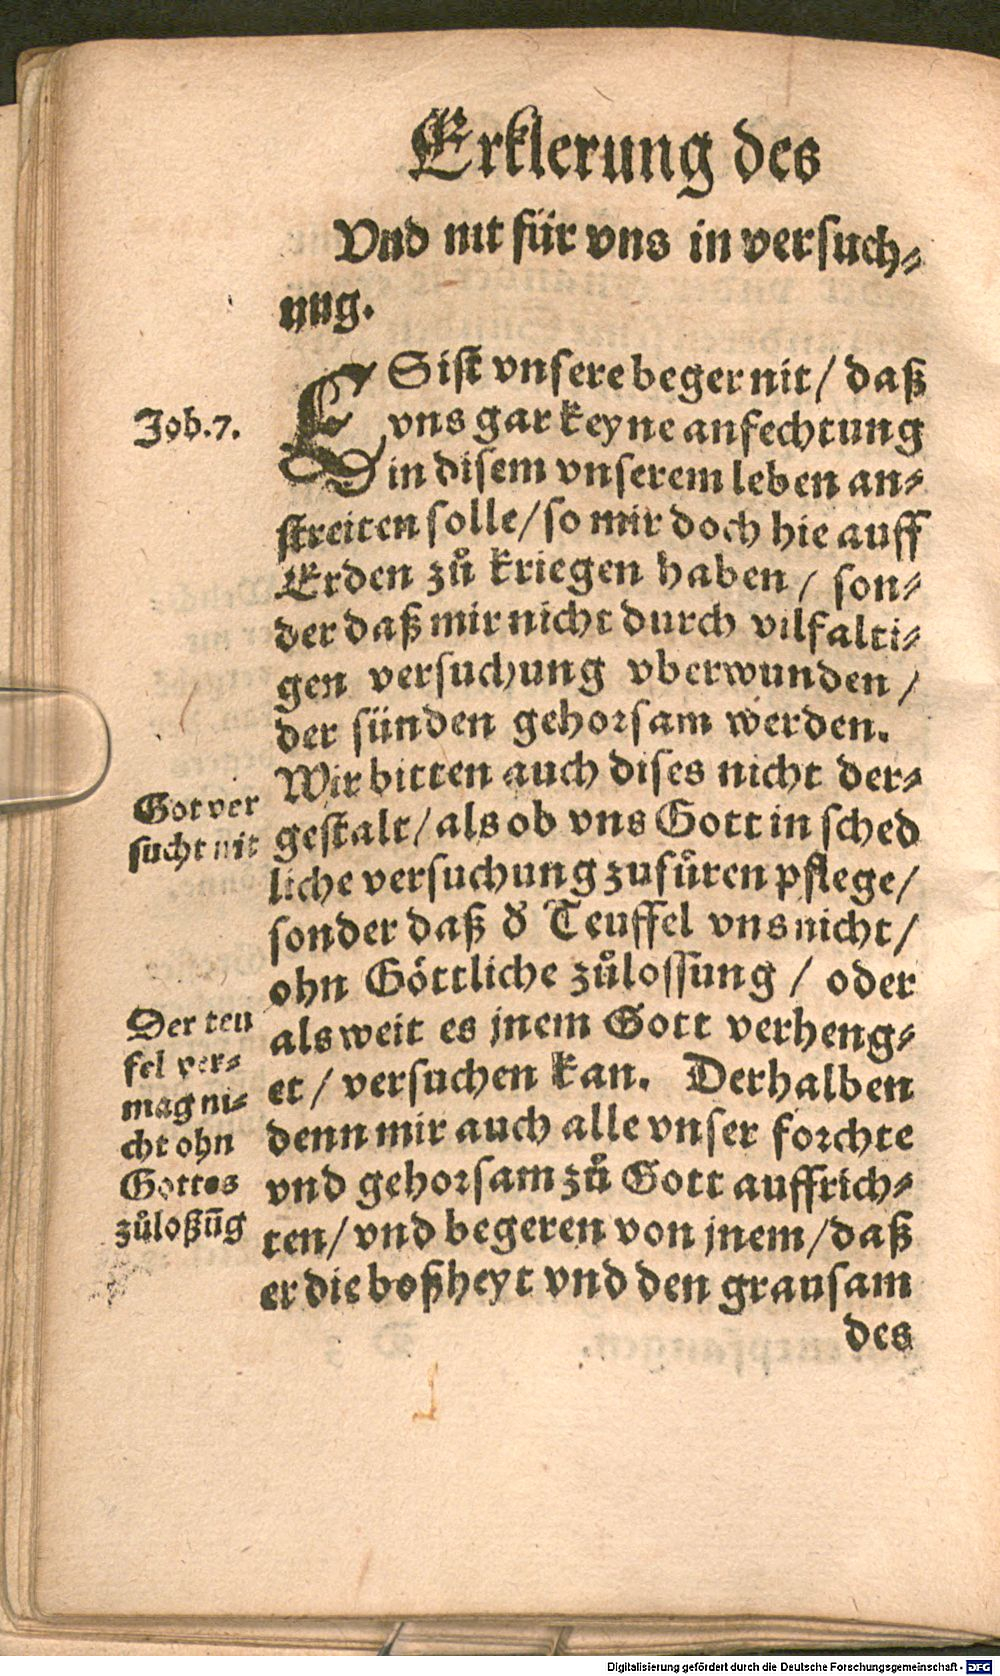 Erklerung des
Vnd nit für vns in versuch⸗
nug.
ES ist vnsere beger nit / daß
Job.7.
vns gar keyne anfechtung
in disem vnserem leben an⸗
streiten solle / so mir doch hie auff
Erden zů kriegen haben / son⸗
der daß mir nicht durch vilfalti⸗
gen versuchung vberwunden /
der sünden gehorsam werden.
Wir bitten auch dises nicht der⸗
Got ver
sucht nit
gestalt / als ob vns Gott in sched
liche versuchung zufůren pflege /
sonder daß d' Teuffel vns nicht /
ohn Göttliche zůlossung / oder
als weit es jnem Gott verheng⸗
et / versuchen kan. Derhalben
Der teu
fel ver⸗
mag ni⸗
cht ohn
Gottes
zůloßūg
denn mir auch alle vnser forchte
vnd gehorsam zů Gott auffrich⸗
ten / vnd begeren von jnem / daß
er die boßheyt vnd den grausam
des
Digitalisierung gefördert durch die Deutsche Forschungsgemeinschaft - DFG